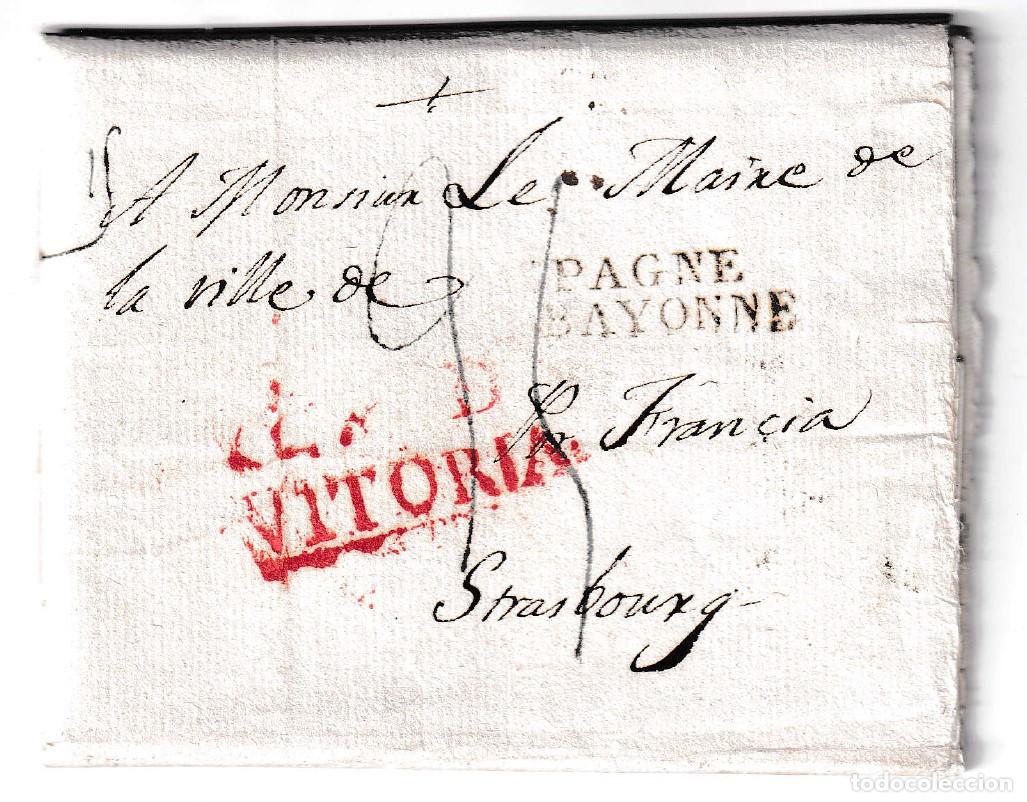 A Monsieur Le Maire de
la ville de
PAGNE
BAYONNE
B
VITORIA
Pr Francia
Strasbourg
todocoleccion